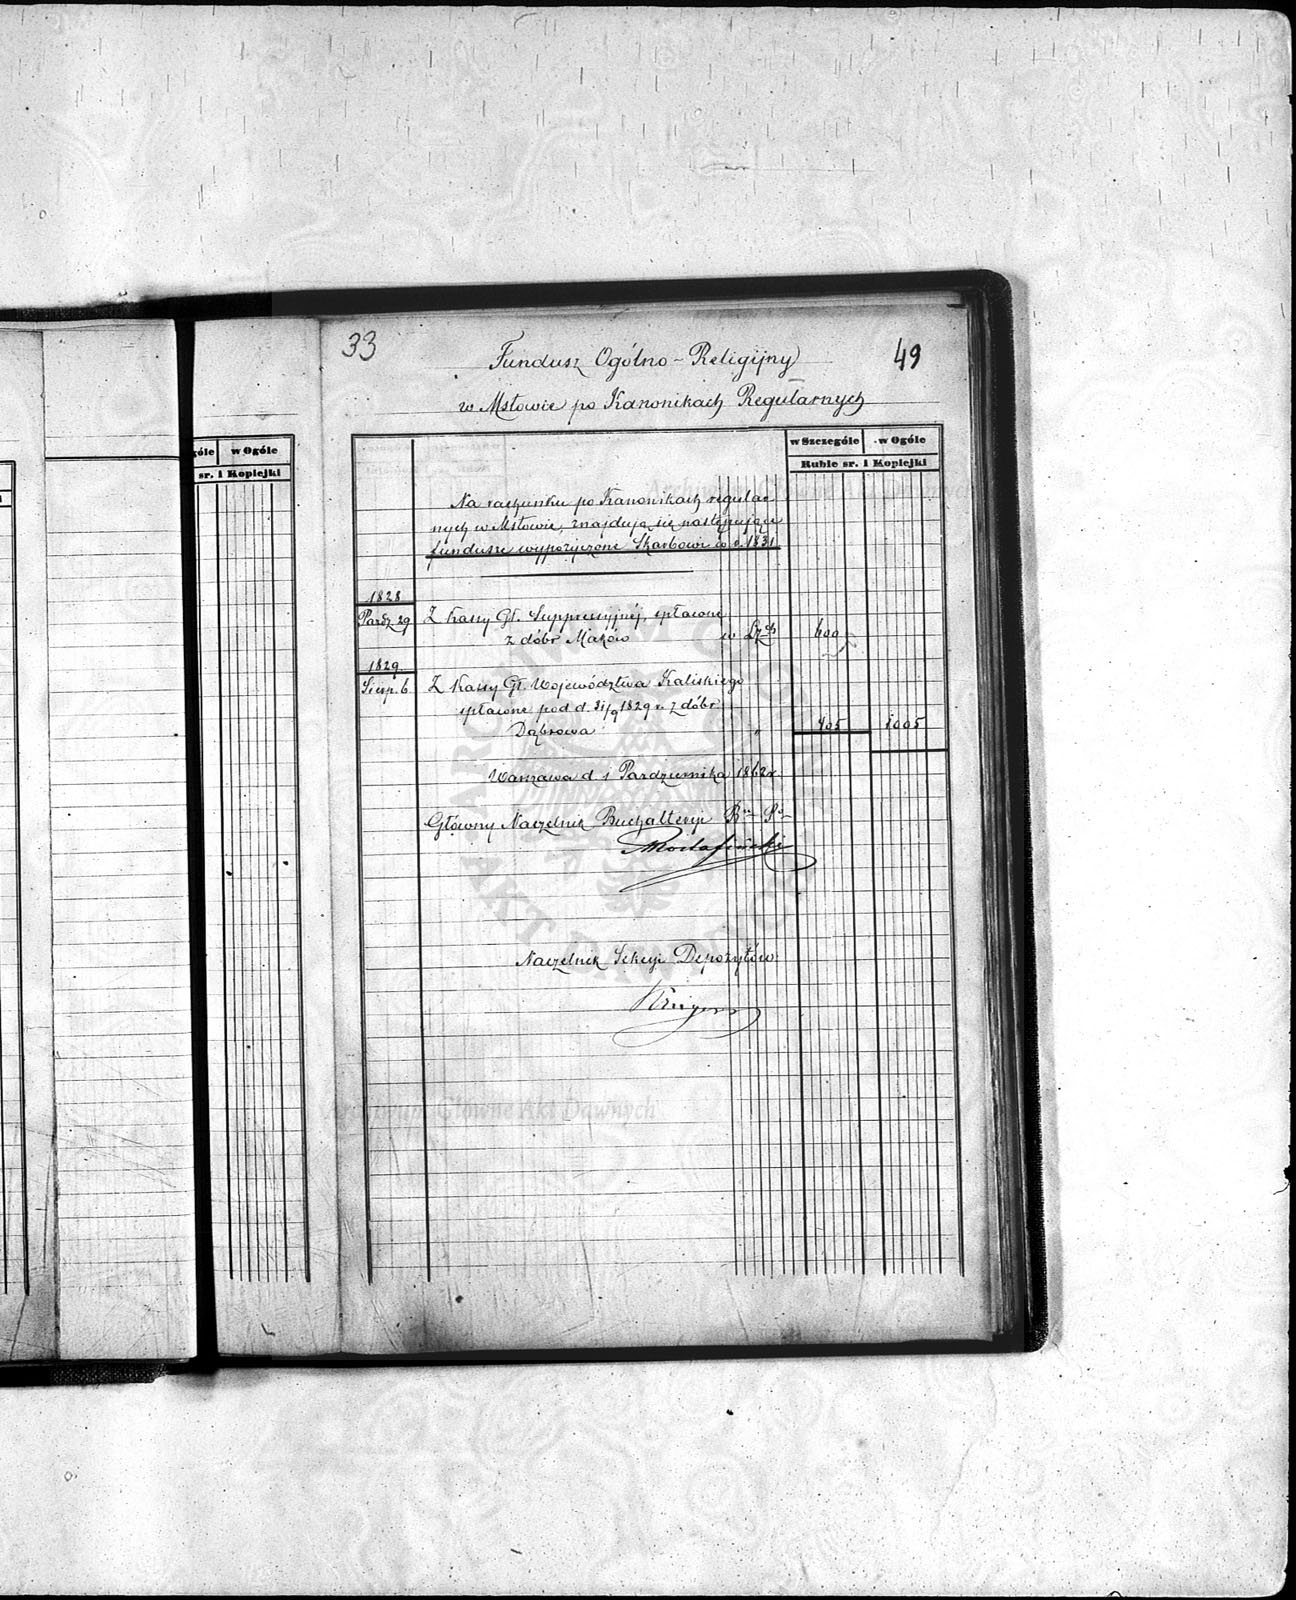 33
49
Fundusz Ogólno-Religijny
w Mstowie po Kanonikach Regularnych
góle w Ogóle
sr. i Kopiejki
w Szczególe w Ogóle
Ruble sr. i Kopiejki
Na rachunku po Kanonikach regular
nych w Mstowie, znajdują się następujące
fundusze wypożyczone Skarbowi do r. 1831
1828
Paźdz. 29 Z Kassy Gł. Suppressyjnéj, spłacone
z dóbr Maków w 600
1829
Sierp. 6 Z Kassy Gł. Województwa Kaliskiego
spłacone pod d. 31/9 1829 r. z dóbr
Dąbrowa " 405 1005
Warszawa d. 1 Października 1862 r.
Główny Naczelnik Buchalteryi
Naczelnik Sekcyi Depozytów
Archiwum Główne Akt Dawnych
ARCHIWUM GŁÓWNE AKT DAWNYCH
Archiwum Główne Akt Dawnych